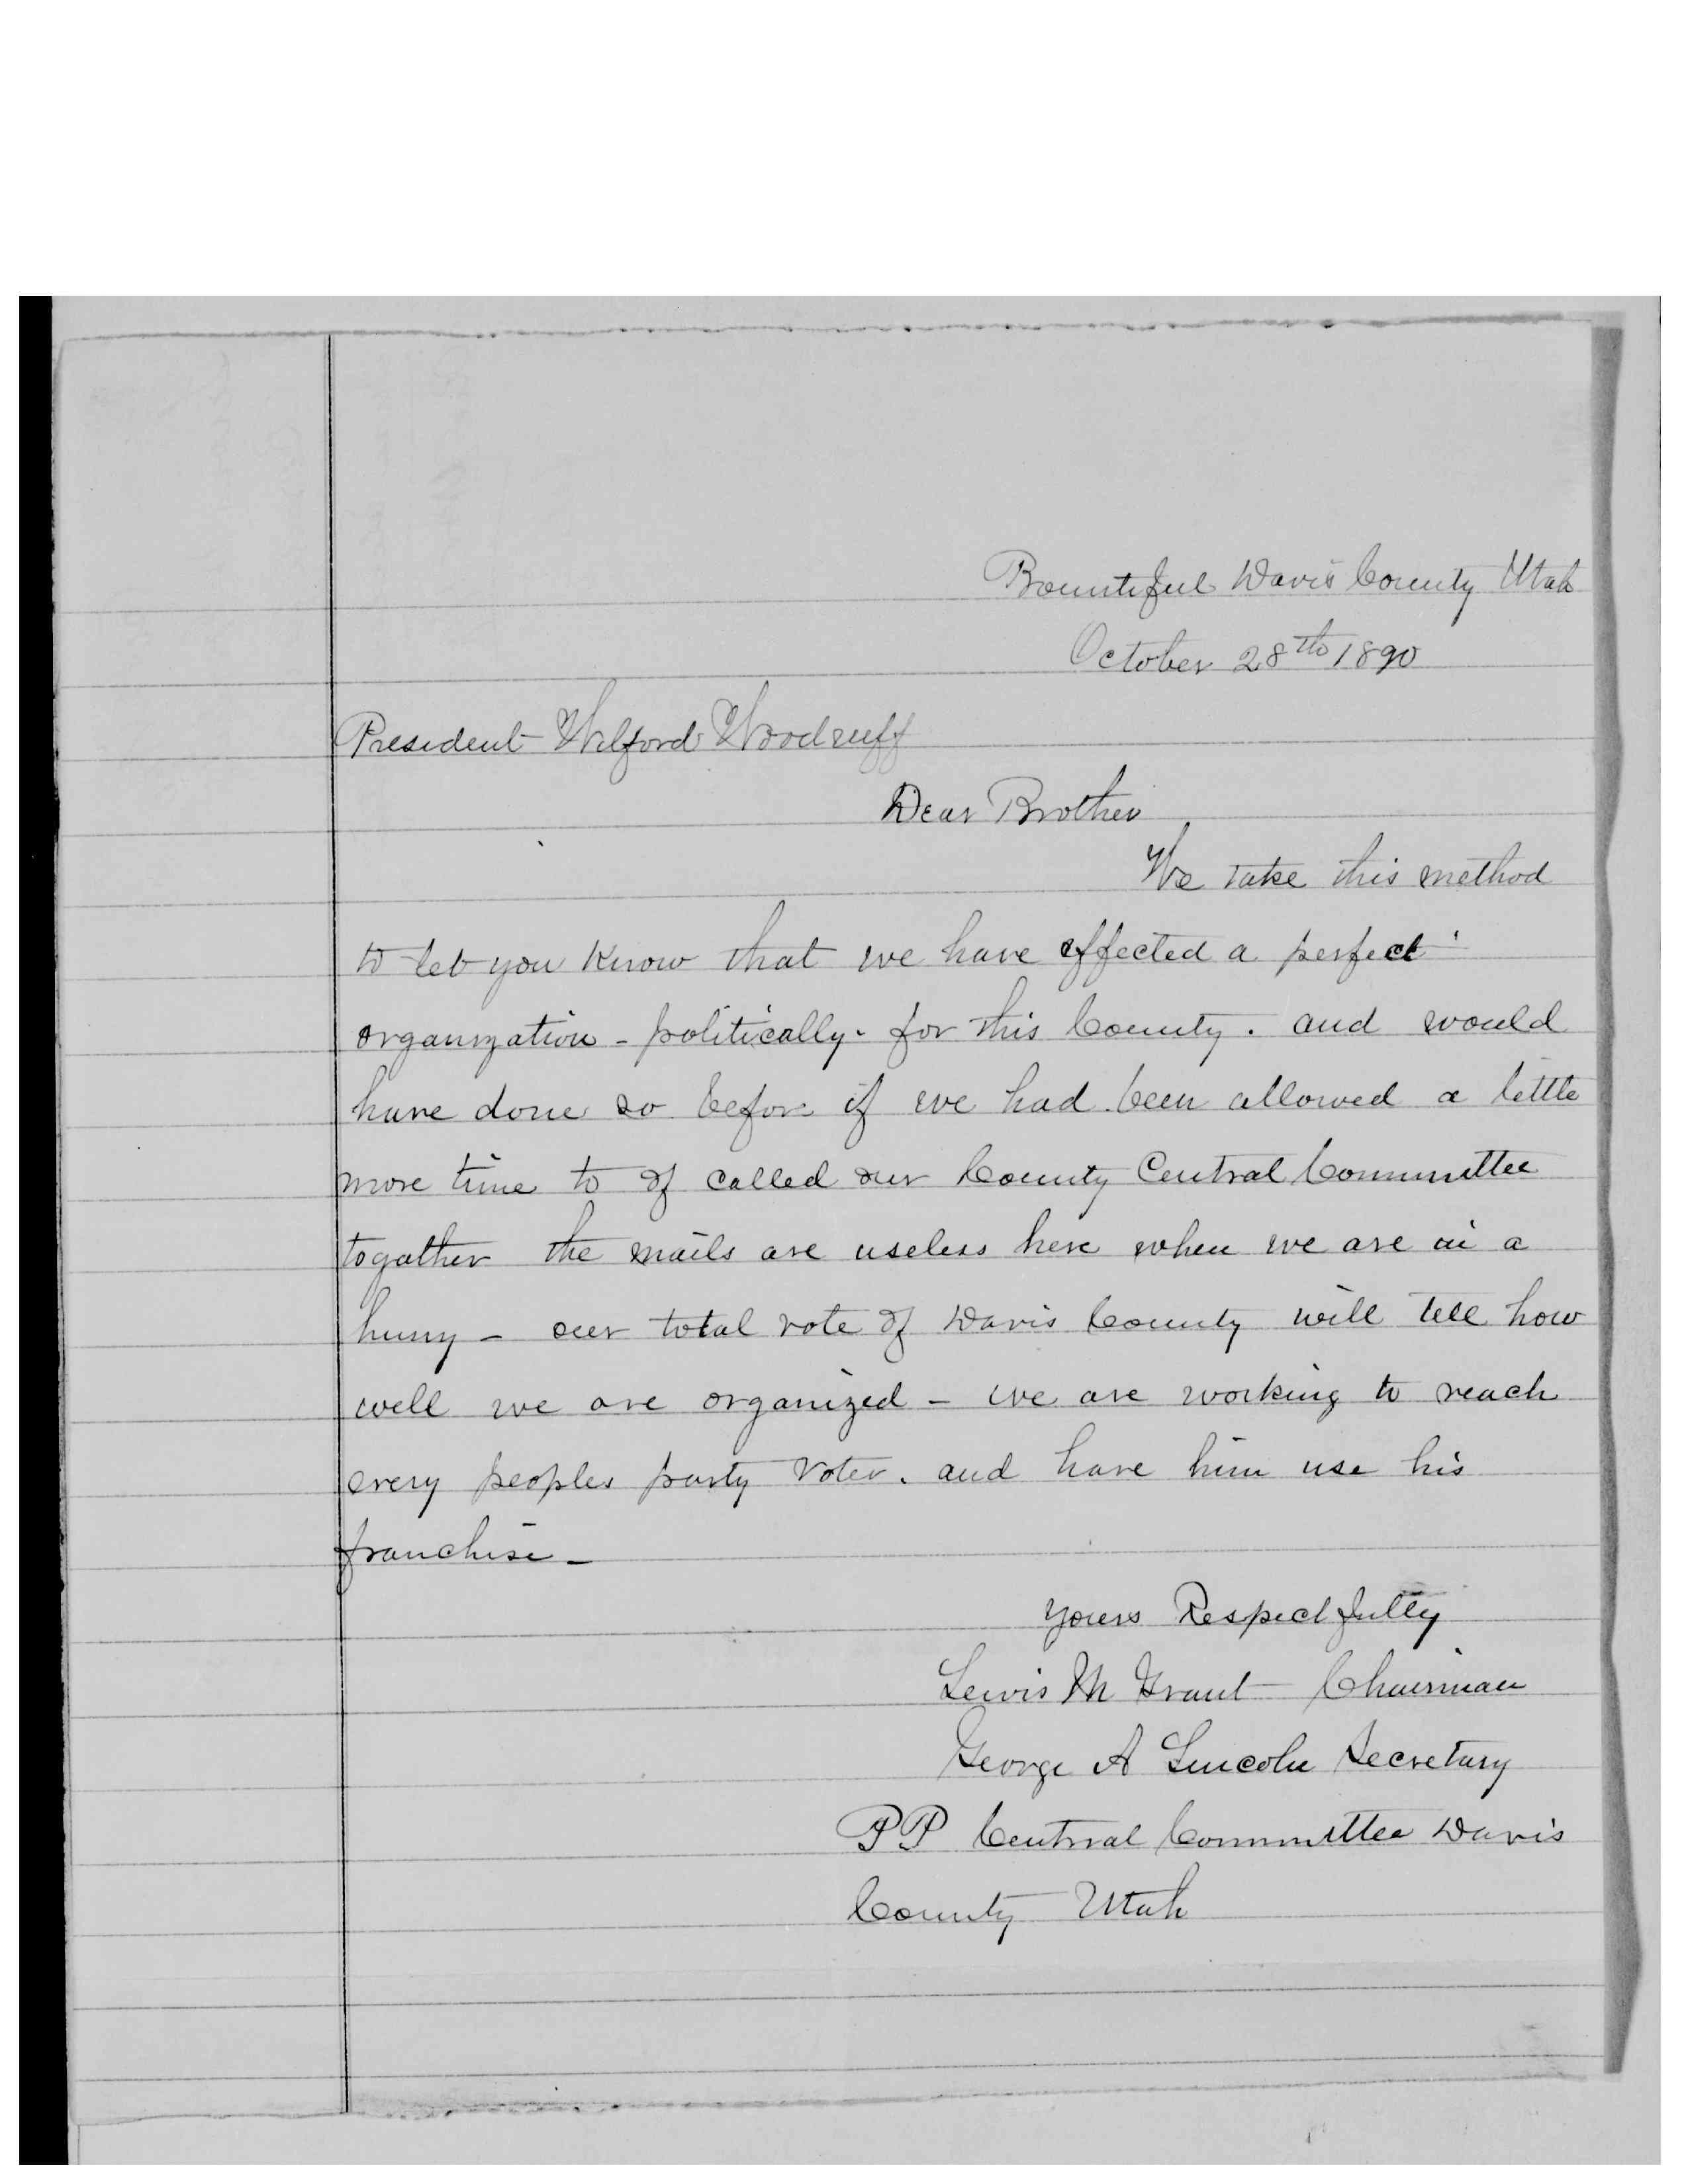 Bountiful Davis County Utah
October 28th 1890
President Wilford Woodruff
Dear Brother
We take this method
to let you know that we have effected a perfect
organization - politically - for this County. and would
have done so before if we had been allowed a little
more time to of called our County Central Committee
togather the mails are useless here when we are in a
hurry - our total vote of Davis County will tell how
well we are organized - we are working to reach
every peoples party voter. and have him use his
franchise -
Yours Respectfully
Lewis M Grant Chairman
George A Lincoln Secretary
PP Central Committee Davis
County Utah